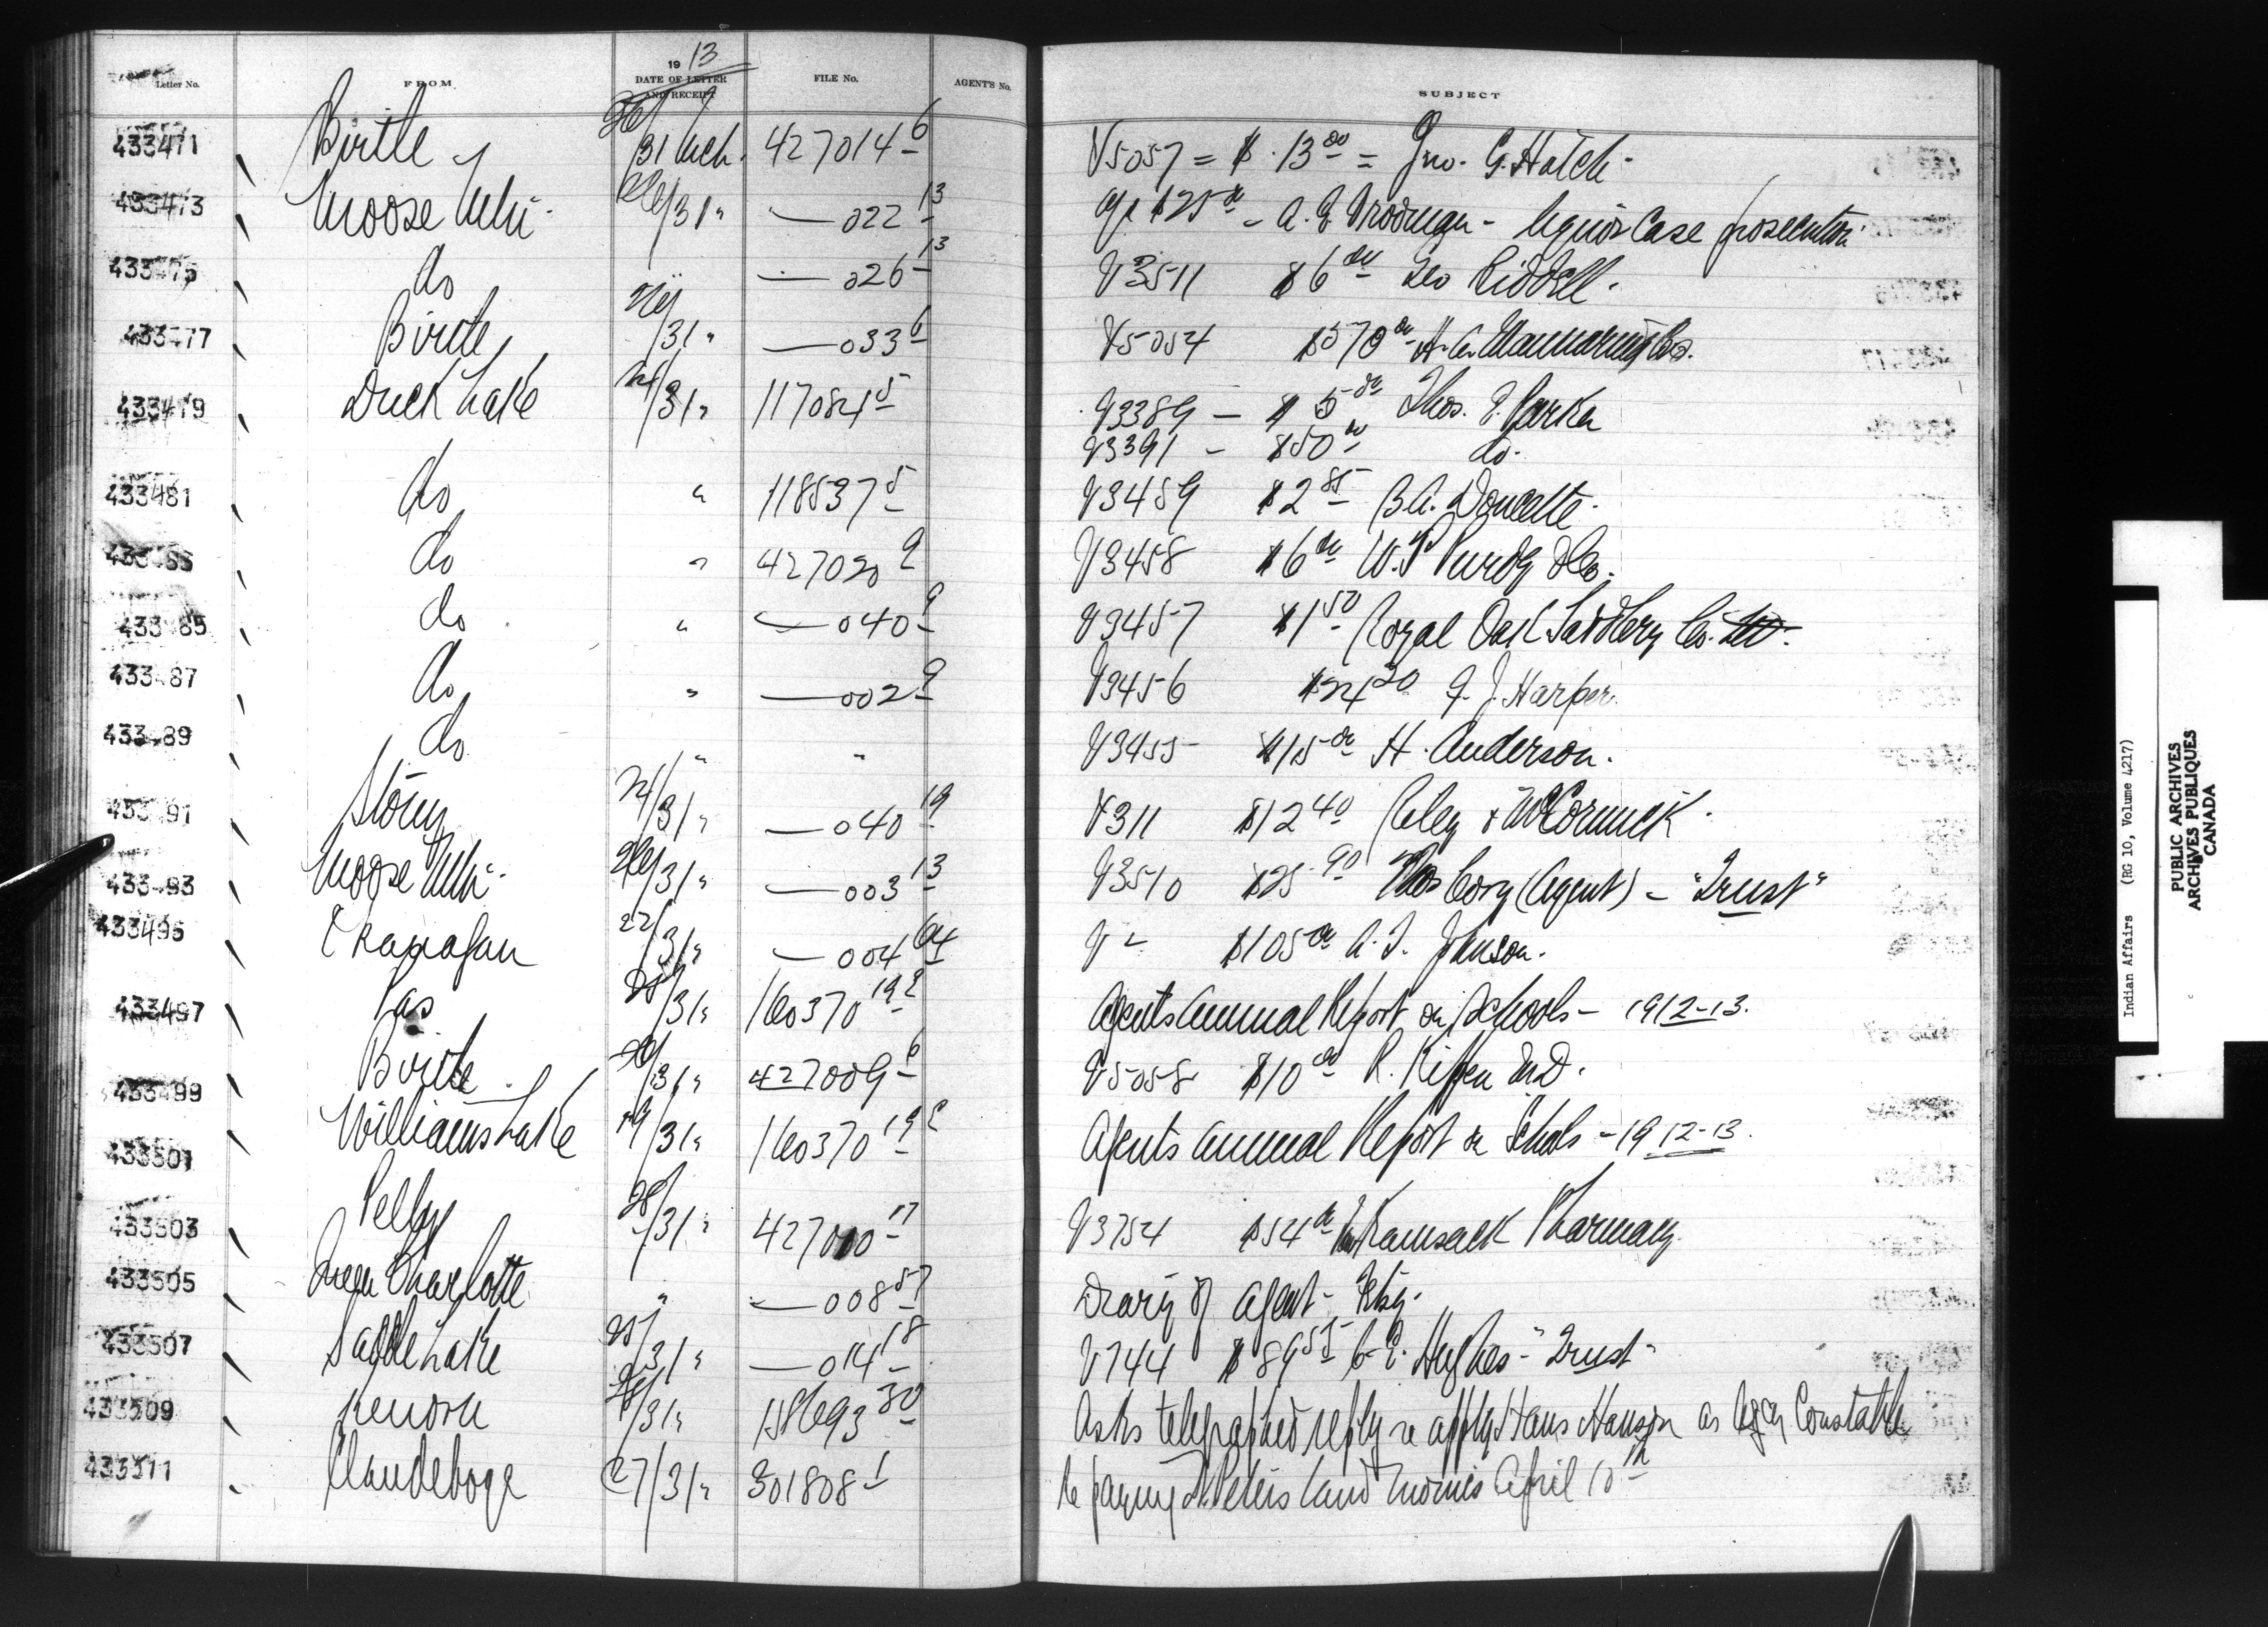 Letter No. FROM 19 13 DATE OF LETTER AND RECEIPT FILE No. AGENT'S No. SUBJECT
433471 Birtle 26/31 Mch. 427014-6 V5057 = $ 13.00 = Jno. G. Hatch.
433473 Moose Mtn. 26/31 " — 022-13 $25.00 - A. E. - liquor case prosecution
433475 do " — 026-13 V3511 $6.00 Geo Riddell.
433477 Birtle 26/31 " — 033-6 V5054 $570.00 H. A. Mannaring Co.
433479 Duck Lake 24/31 " 117084-5 V3389 - $5.00 Thos. E. Parker
V3391 - $50.00 do.
433481 do " 118537-5 V3459 $2.85 B. A. Doucette.
do " 427020-9 V3458 $6.00 W. P. Purdy & Co.
433485 do " — 040-9 V3457 $1.50 Royal Oak Saddlery Co. Ltd.
433487 do " — 002-9 V3456 $24.20 J. Harper.
433489 do " " V3455 $15.00 H. Anderson.
433491 Stony 24/31 " — 040-19 V311 $12.40 Riley & McCormick.
433493 Moose Mtn. 26/31 " — 003-13 V3510 $25.90 Thos Cory (Agent) - "Trust"
433495 Okanagan 22/31 " — 004-64 V - $105.00 A. T. Johnson.
433497 Pas 25/31 " 160370-19-2 Agents Annual Report on Schools - 1912-13.
433499 Birtle 26/31 " 427009-6 V5058 $10.00 R. Kippen M.D.
433501 Williams Lake 19/31 " 160370-19-2 Agents Annual Report on Schools - 1912-13.
433503 Pelly 28/31 " 427010-17 V3754 $54.00 Kamsack Pharmacy
433505 Queen Charlotte " — 008-57 Diary of Agent - Feby.
433507 Saddle Lake 25/31 " — 014-18 V744 $89.55 C. E. Hughes - "Trust"
433509 Kenora 28/31 " 158693-30 Asks telegraphed reply re appt Hans Hanson as Agcy Constable
433511 Clandeboye 27/31 " 301808-1 Re paying St. Peters land monies April 10th
Indian Affairs (RG 10, Volume 4217)
PUBLIC ARCHIVES
ARCHIVES PUBLIQUES
CANADA